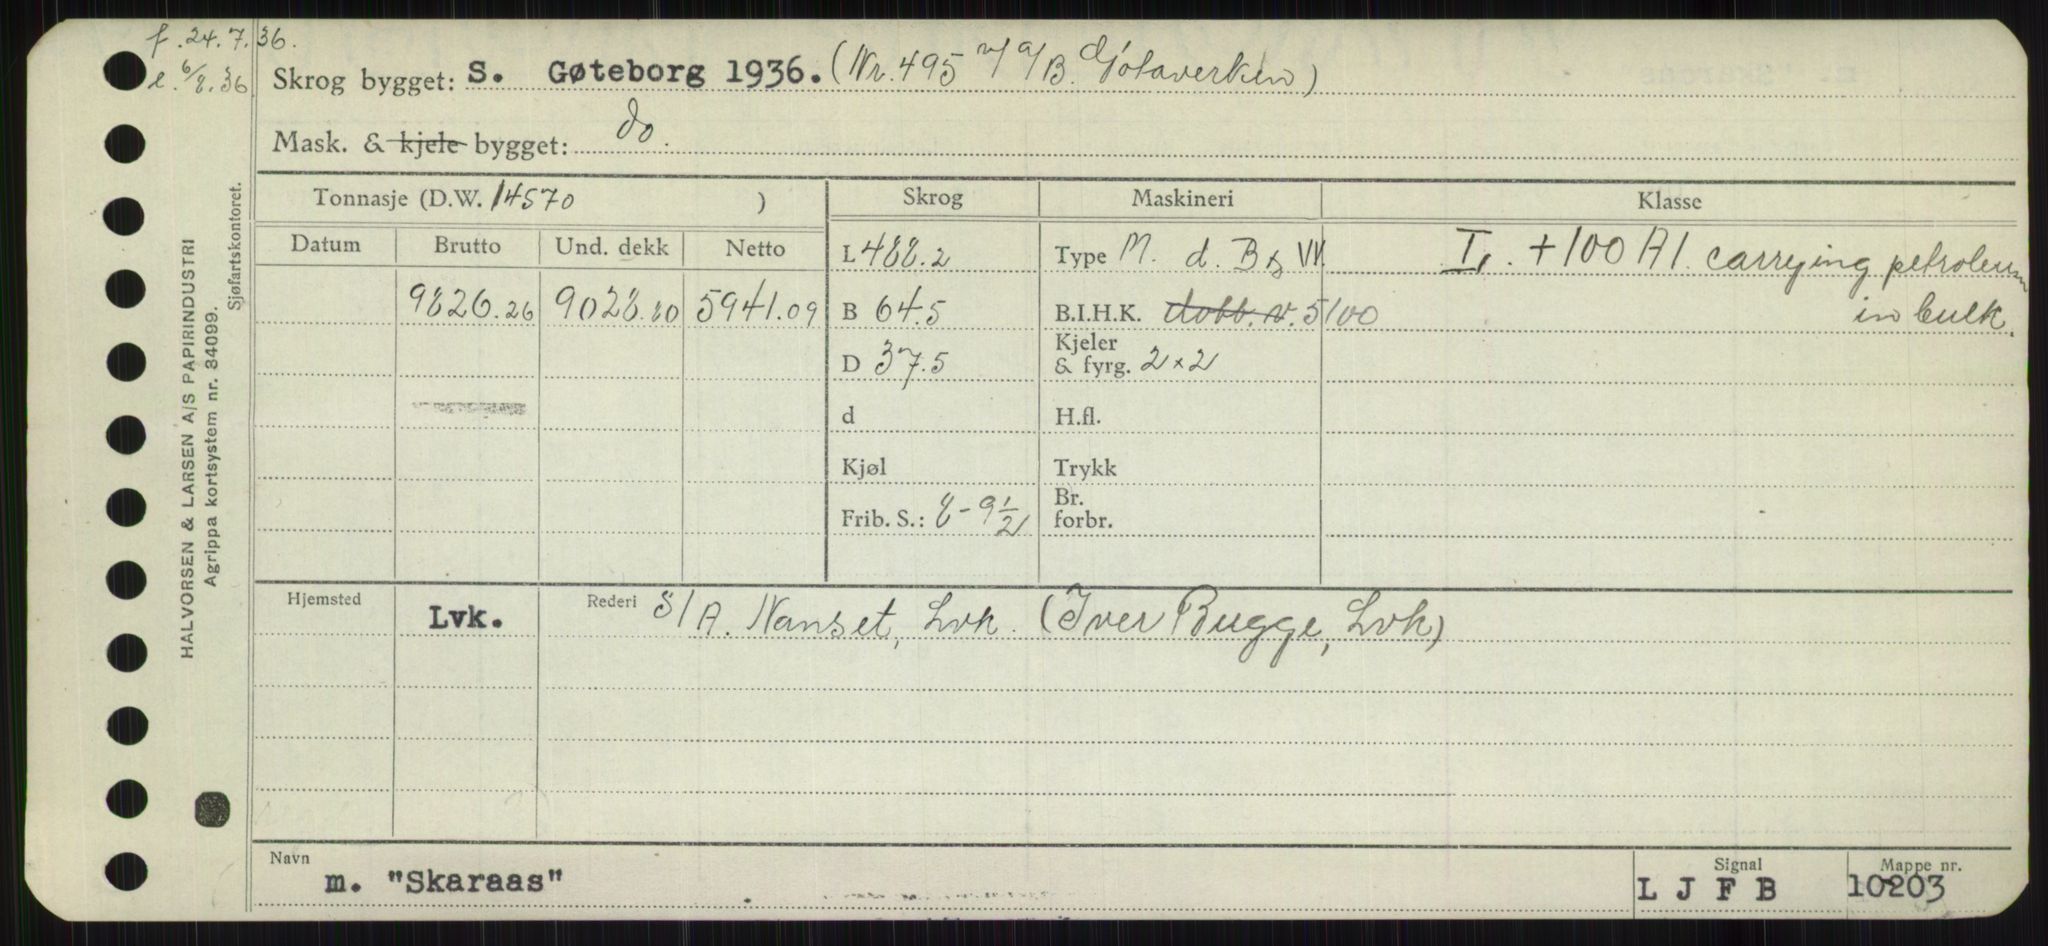 f. 24.7.36.
l. 6/8.36
Skrog bygget: S. Gøteborg 1936. (Nr. 495 v/ A/B. Götaverken)
Mask. & kjele bygget: do.
Tonnasje (D.W. 14570 ) Skrog Maskineri Klasse
Datum Brutto Und. dekk Netto L 488.2 Type M. d. B & W. I. +100 A1. carrying petroleum
9826.26 9028.80 5941.09 B 64.5 B.I.H.K. dobb. v. 5100 in bulk.
D 37.5 Kjeler & fyrg. 2×2
d H.fl.
Kjøl Trykk
Frib. S.: 8-9½ Br. forbr.
Hjemsted Lvk. Rederi S/A. Nanset, Lvk. (Iver Bugge, Lvk)
Navn m. "Skaraas" Signal L J F B Mappe nr. 10203
HALVORSEN & LARSEN A/S PAPIRINDUSTRI
Agrippa kortsystem nr. 34099.
Sjøfartskontoret.